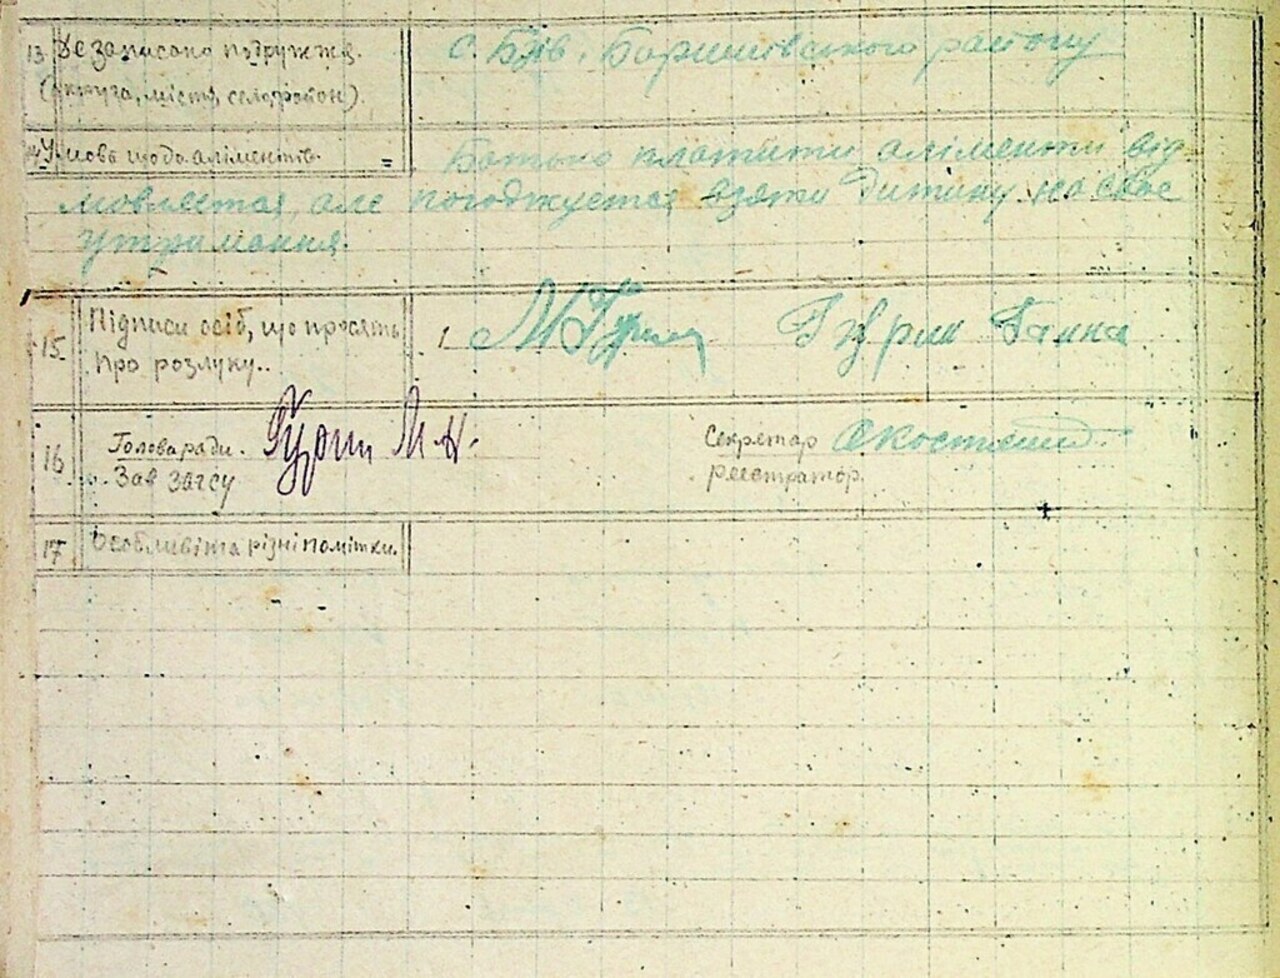 13 Де записано подружжя. с. Бзів, Баришівського району
(округа, місто, село, район).
14 Умова щодо аліментів. = Батько платити аліменти від
мовляєтця, але погоджуєтця взяти дитину на своє
утримання.
15 Підписи осіб, що просять 1. МГурин Гурин Ганна
про розлуку..
16 Голова ради. Гурин М. Секретар
Зав загсу реєстратор.
17 Особливі та різні помітки.